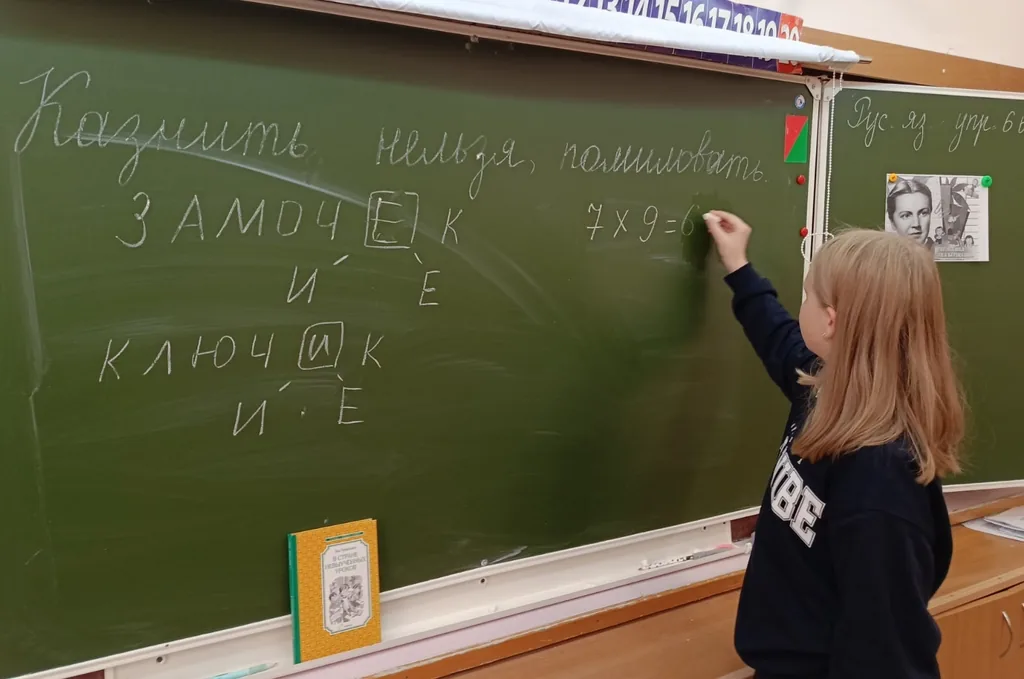 13 14 15 16 17 18 19 20
Казнить нельзя, помиловать.
ЗАМОЧЕК
И Е
КЛЮЧиК
И Е
7 x 9 = 6
Рус. яз. упр. 6
В СТРАНЕ
НЕВЫУЧЕННЫХ
УРОКОВ